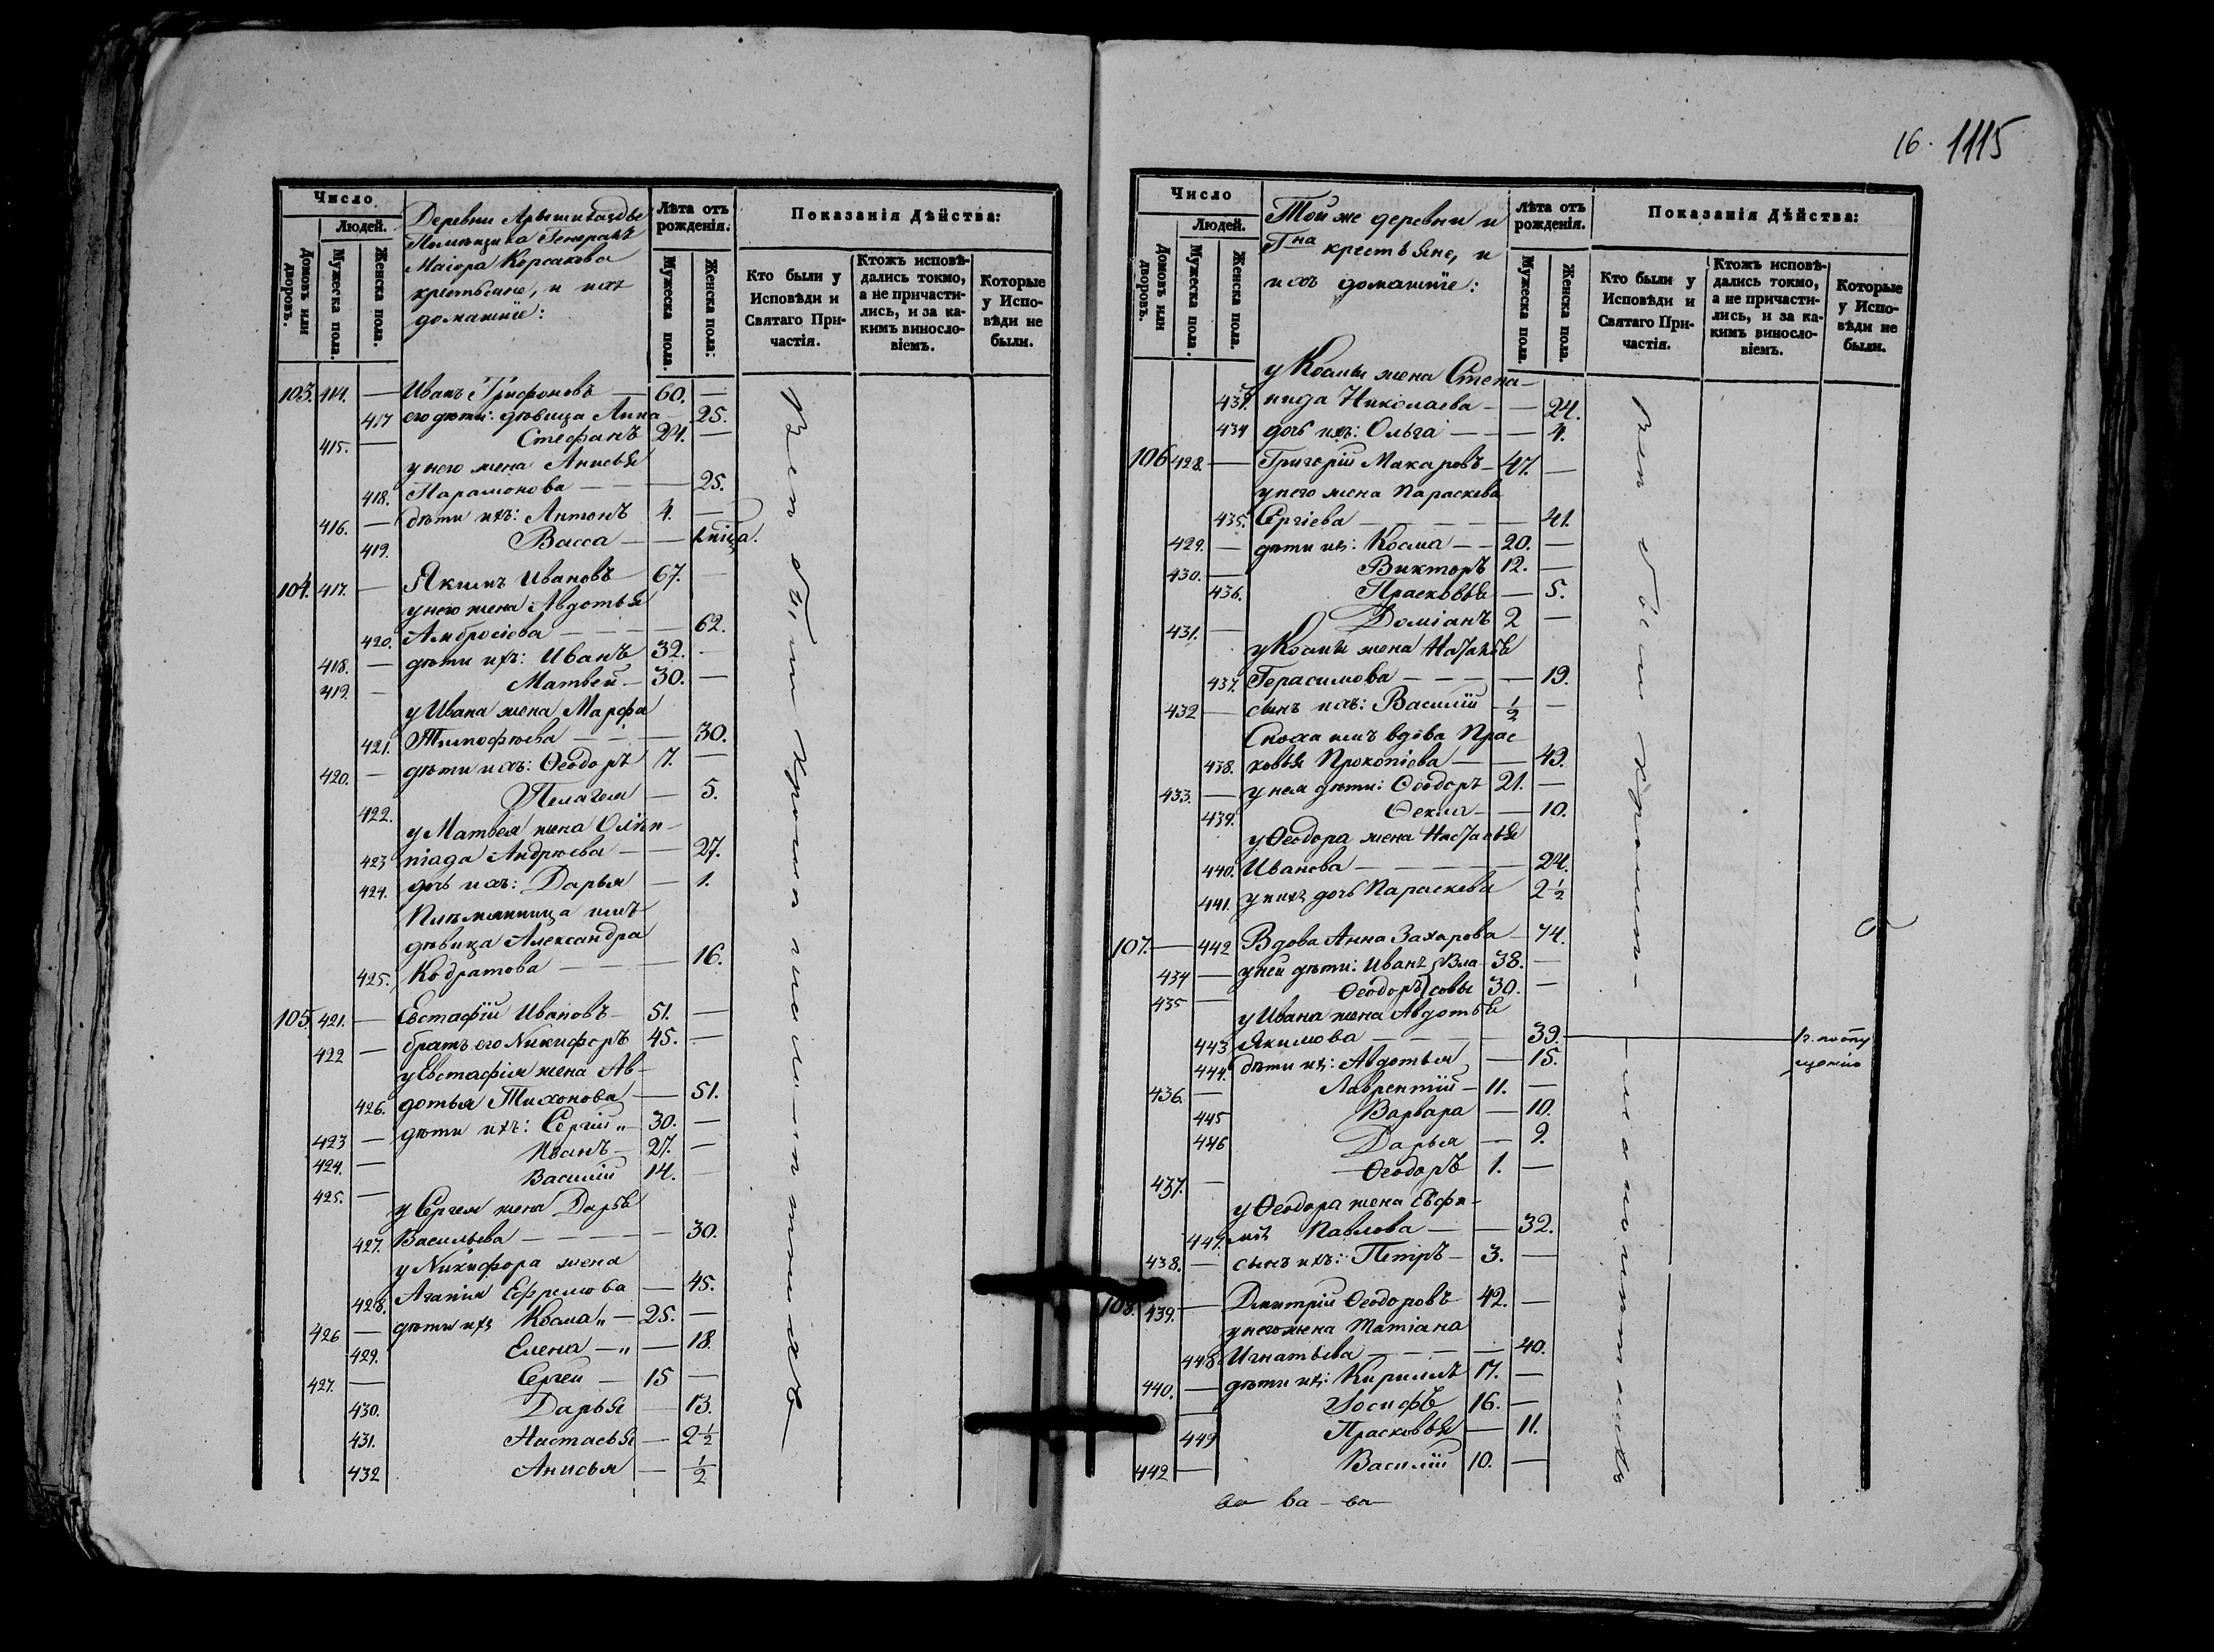 16. 1115
Число
Людей.
Домовъ или дворовъ.
Мужеска пола.
Женска пола.
Деревни
Помѣщика Генералъ
Маіора Корсакова
крестьяне, и ихъ
домашніе:
Лѣта отъ рожденія.
Мужеска пола.
Женска пола:
Показанія Дѣйства:
Кто были у Исповѣди и Святаго Причастія.
Ктожъ исповѣдались токмо, а не причастились, и за какимъ винословіемъ.
Которые у Исповѣди не были.
103. 414. — Иванъ Трифоновъ — 60. —
417 его дѣти: дѣвица Анна 25.
415. — Стефанъ 24. —
у него жена Анисья
418. Парамонова — — — 25.
416. — дѣти ихъ: Антонъ 4. —
419. Васса — —
104. 417. — Якимъ Ивановъ 67. —
у него жена Авдотья
420. Амбросіева — — — 62.
418. — дѣти ихъ: Иванъ 32. -
419. — Матвей — 30. —
у Ивана жена Марфа
421. Тимофѣева — — — 30.
420. — дѣти ихъ: Ѳеодоръ 7. —
422. Пелагея — 5.
у Матвея жена Олим-
423 піада Андрѣева — — 27.
424. дочь ихъ: Дарья — 1.
Племянница имъ
дѣвица Александра
425. Кодратова — — — 16.
105. 421. — Евстафій Ивановъ — 51. —
422 — братъ его Никифоръ 45. —
у Евстафія жена Ав-
426. дотья Тихонова — 51.
423 — дѣти ихъ: Сергій „ — 30. —
424. — Иванъ — 27. —
425. — Василій 14. —
у Сергея жена Дарья
427. Васильева — — — 30.
у Никифора жена
428. Агапія Ефремова — 45.
426 — дѣти ихъ Косма „ — 25. —
429. Елена — „ — 18.
427. — Сергей — 15 —
430. Дарья — 13.
431. Настасья — 2½
432 Анисья — ½
Число
Людей.
Домовъ или дворовъ.
Мужеска пола.
Женска пола.
Той же деревни и
Гна крестьяне, и
ихъ домашніе:
Лѣта отъ рожденія.
Мужеска пола.
Женска пола.
Показанія Дѣйства:
Кто были у Исповѣди и Святаго Причастія.
Ктожъ исповѣдались токмо, а не причастились, и за какимъ винословіемъ.
Которые у Исповѣди не были.
у Космы жена Степа-
нида Николаева — — 24.
434 дочь ихъ: Ольга — — — 4.
106 428. — Григорій Макаровъ — 47. —
у него жена Параскева
435. Сергіева — — — 41.
429. — дѣти ихъ: Косма — — 20. —
430. — Викторъ 12. —
436. Прасковья — 5.
431. — Доміанъ 2 —
у Космы жена Настасья
437. Герасимова — — — 19.
432 — сынъ ихъ: Василій — ½ —
Сноха имъ вдова Прас-
438. ковья Прокопіева — — 49.
433. — у нея дѣти: Ѳеодоръ 21. —
439. Ѳекла — — 10.
у Ѳеодора жена Настасья
440. Иванова — — — 24.
441. у нихъ дочь Параскева 2½
107. — 442 Вдова Анна Захарова — 74.
434 — у ней дѣти: Иванъ Вла- 38. —
435 — Ѳеодоръ совы 30. —
у Ивана жена Авдотья
443 Якимова — — — 39. — по опу
щенію
444. дѣти ихъ: Авдотья — 15.
436. — Лаврентій — 11. —
445 Варвара — 10.
446 Дарья — 9.
437. — Ѳеодоръ 1. —
у Ѳеодора жена Евфи-
447. Павлова — — 32.
438. — сынъ ихъ: Петръ — 3. —
108. 439. — Дмитрій Ѳеодоровъ 42. —
у него жена Татіана
448 Игнатьева — — — 40.
440. — дѣти ихъ: Кириллъ 17. —
— Іосифъ 16. —
449 Прасковья — 11.
442 — Василій 10. —